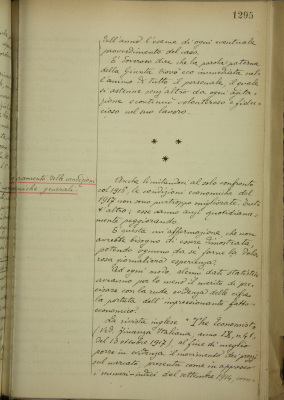 1295
dell'anno l'esame di ogni eventuale
provvedimento del caso.
E' doveroso dire che la parola paterna
della Giunta trovò eco immediata nel-
l'animo di tutto il personale, il quale
si astenne senz'altro da ogni agita-
zione e continuò volenteroso e fidu-
cioso nel suo lavoro.
* * *
delle condizioni
economiche generali.
Anche limitandosi al solo confronto
col 1916, le condizioni economiche del
1917 non sono purtroppo migliorate: tutt'
altro; esse vanno anzi quotidiana-
mente peggiorando.
E' questa un'affermazione che non
avrebbe bisogno di essere dimostrata
potendo ognuno da se farne la dolo-
rosa giornaliera esperienza.
Ad ogni modo alcuni dati statistici
avranno per lo meno il merito di pre-
cisare con la nuda evidenza delle cifre
la portata dell'impressionante fatto
economico.
La rivista inglese "The Economist"
(Ved. Finanza Italiana, anno IX, n. 41
del 13 ottobre 1917), al fine di meglio
porre in evidenza il movimento dei prezzi
sul mercato presenta come appresso
i numeri-indici del settembre 1914,